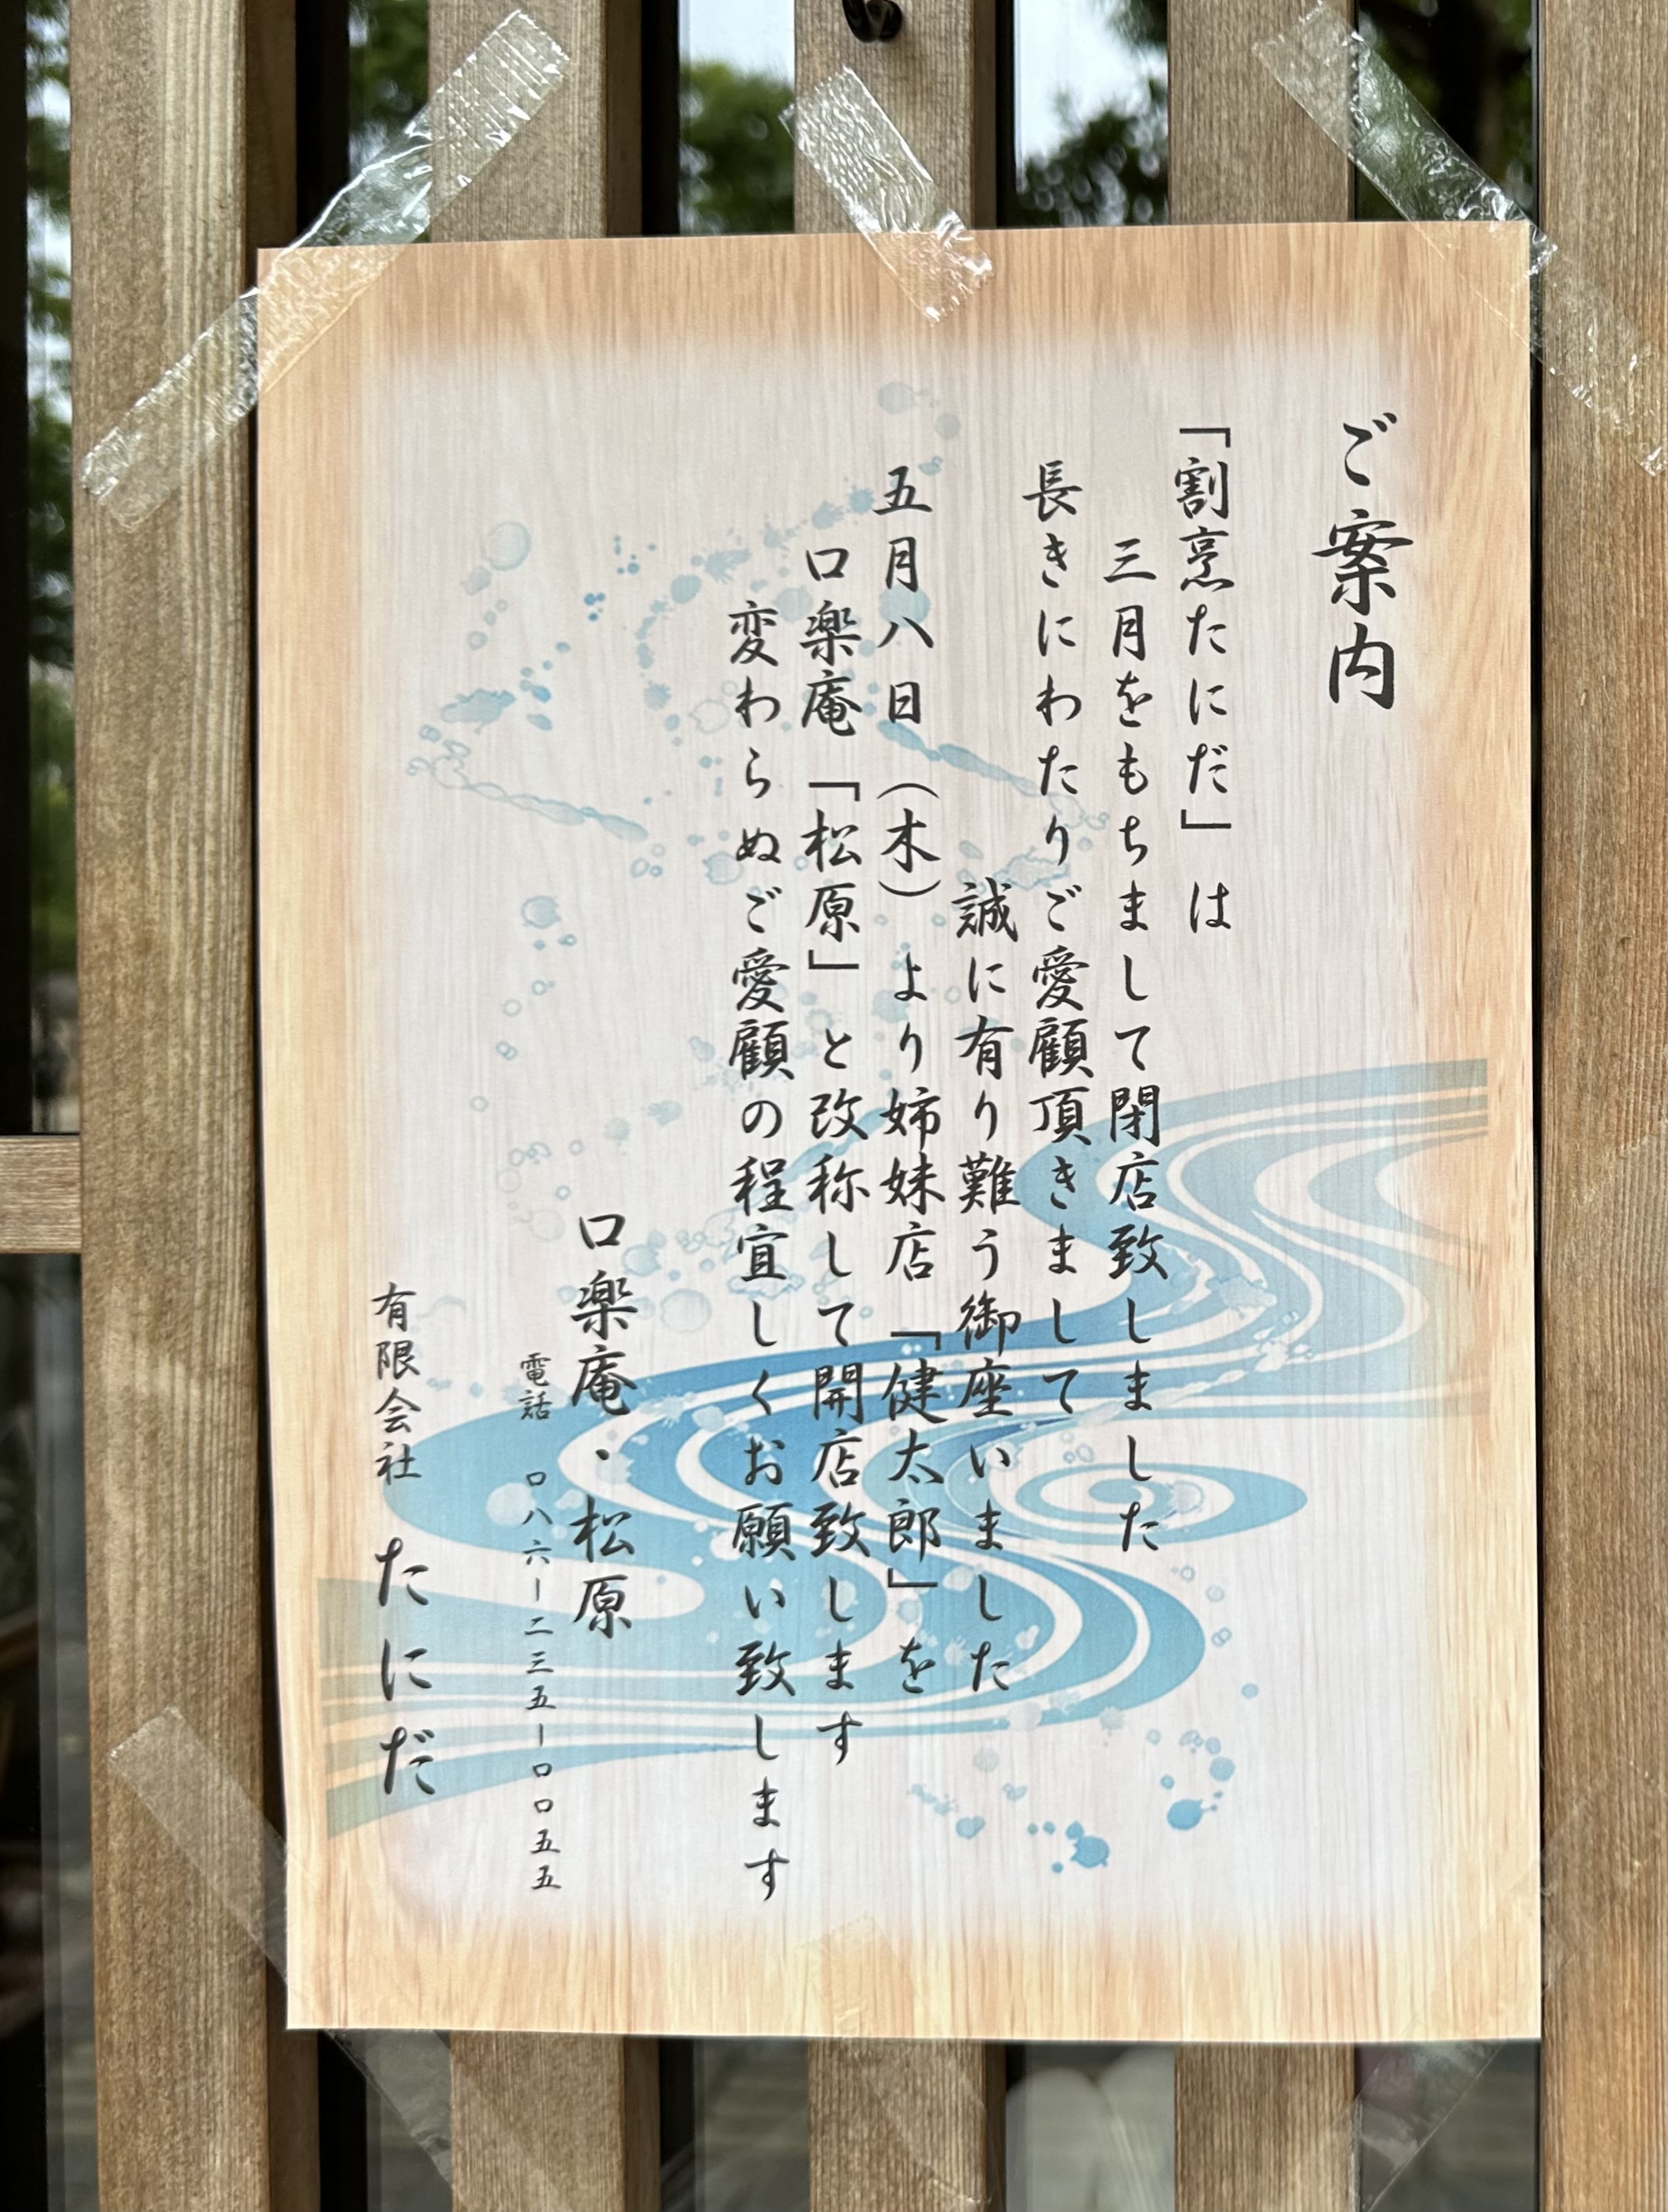 ご案内
「割烹たにだ」は
三月をもちまして閉店致しました
長きにわたりご愛顧頂きまして
誠に有り難う御座いました
五月八日（木）より姉妹店「健太郎」を
口楽庵「松原」と改称して開店致します
変わらぬご愛顧の程宜しくお願い致します
口楽庵・松原
電話 〇八六ー二三五ー〇〇五五
有限会社 たにだ